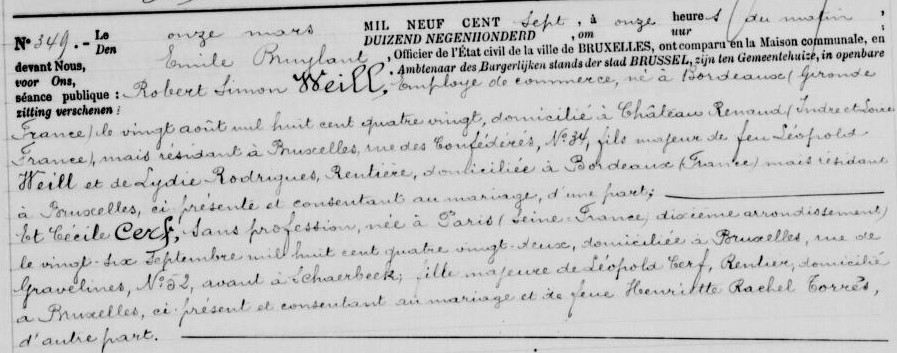 N° 349.- Le onze mars MIL NEUF CENT sept, à onze heures (du matin,
Den DUIZEND NEGENHONDERD , om uur
devant Nous, Emile Bruylant, Officier de l'État civil de la ville de BRUXELLES, ont comparu en la Maison communale, en
voor Ons, Ambtenaar des Burgerlijken stands der stad BRUSSEL, zijn ten Gemeentehuize, in openbare
séance publique : Robert Simon Weill, Employé de commerce, né à Bordeaux (Gironde
zitting verschenen :
France) le vingt août mil huit cent quatre vingt, domicilié à Château Renaud (Indre et Loire
France), mais résidant à Bruxelles, rue des Confédérés, N° 34, fils majeur de feu Léopold
Weill et de Lydie Rodrigues, Rentière, domiciliée à Bordeaux (France) mais résidant
à Bruxelles, ci présente et consentant au mariage, d'une part;
Et Cécile Cerf, Sans profession, née à Paris (Seine-France, dixième arrondissement)
le vingt-six Septembre mil huit cent quatre vingt-deux, domiciliée à Bruxelles, rue de
Gravelines, N° 52, avant à Schaerbeek; fille majeure de Léopold Cerf, Rentier, domicilié
à Bruxelles, ci présent et consentant au mariage et de feue Henriette Rachel Torrès,
d'autre part.